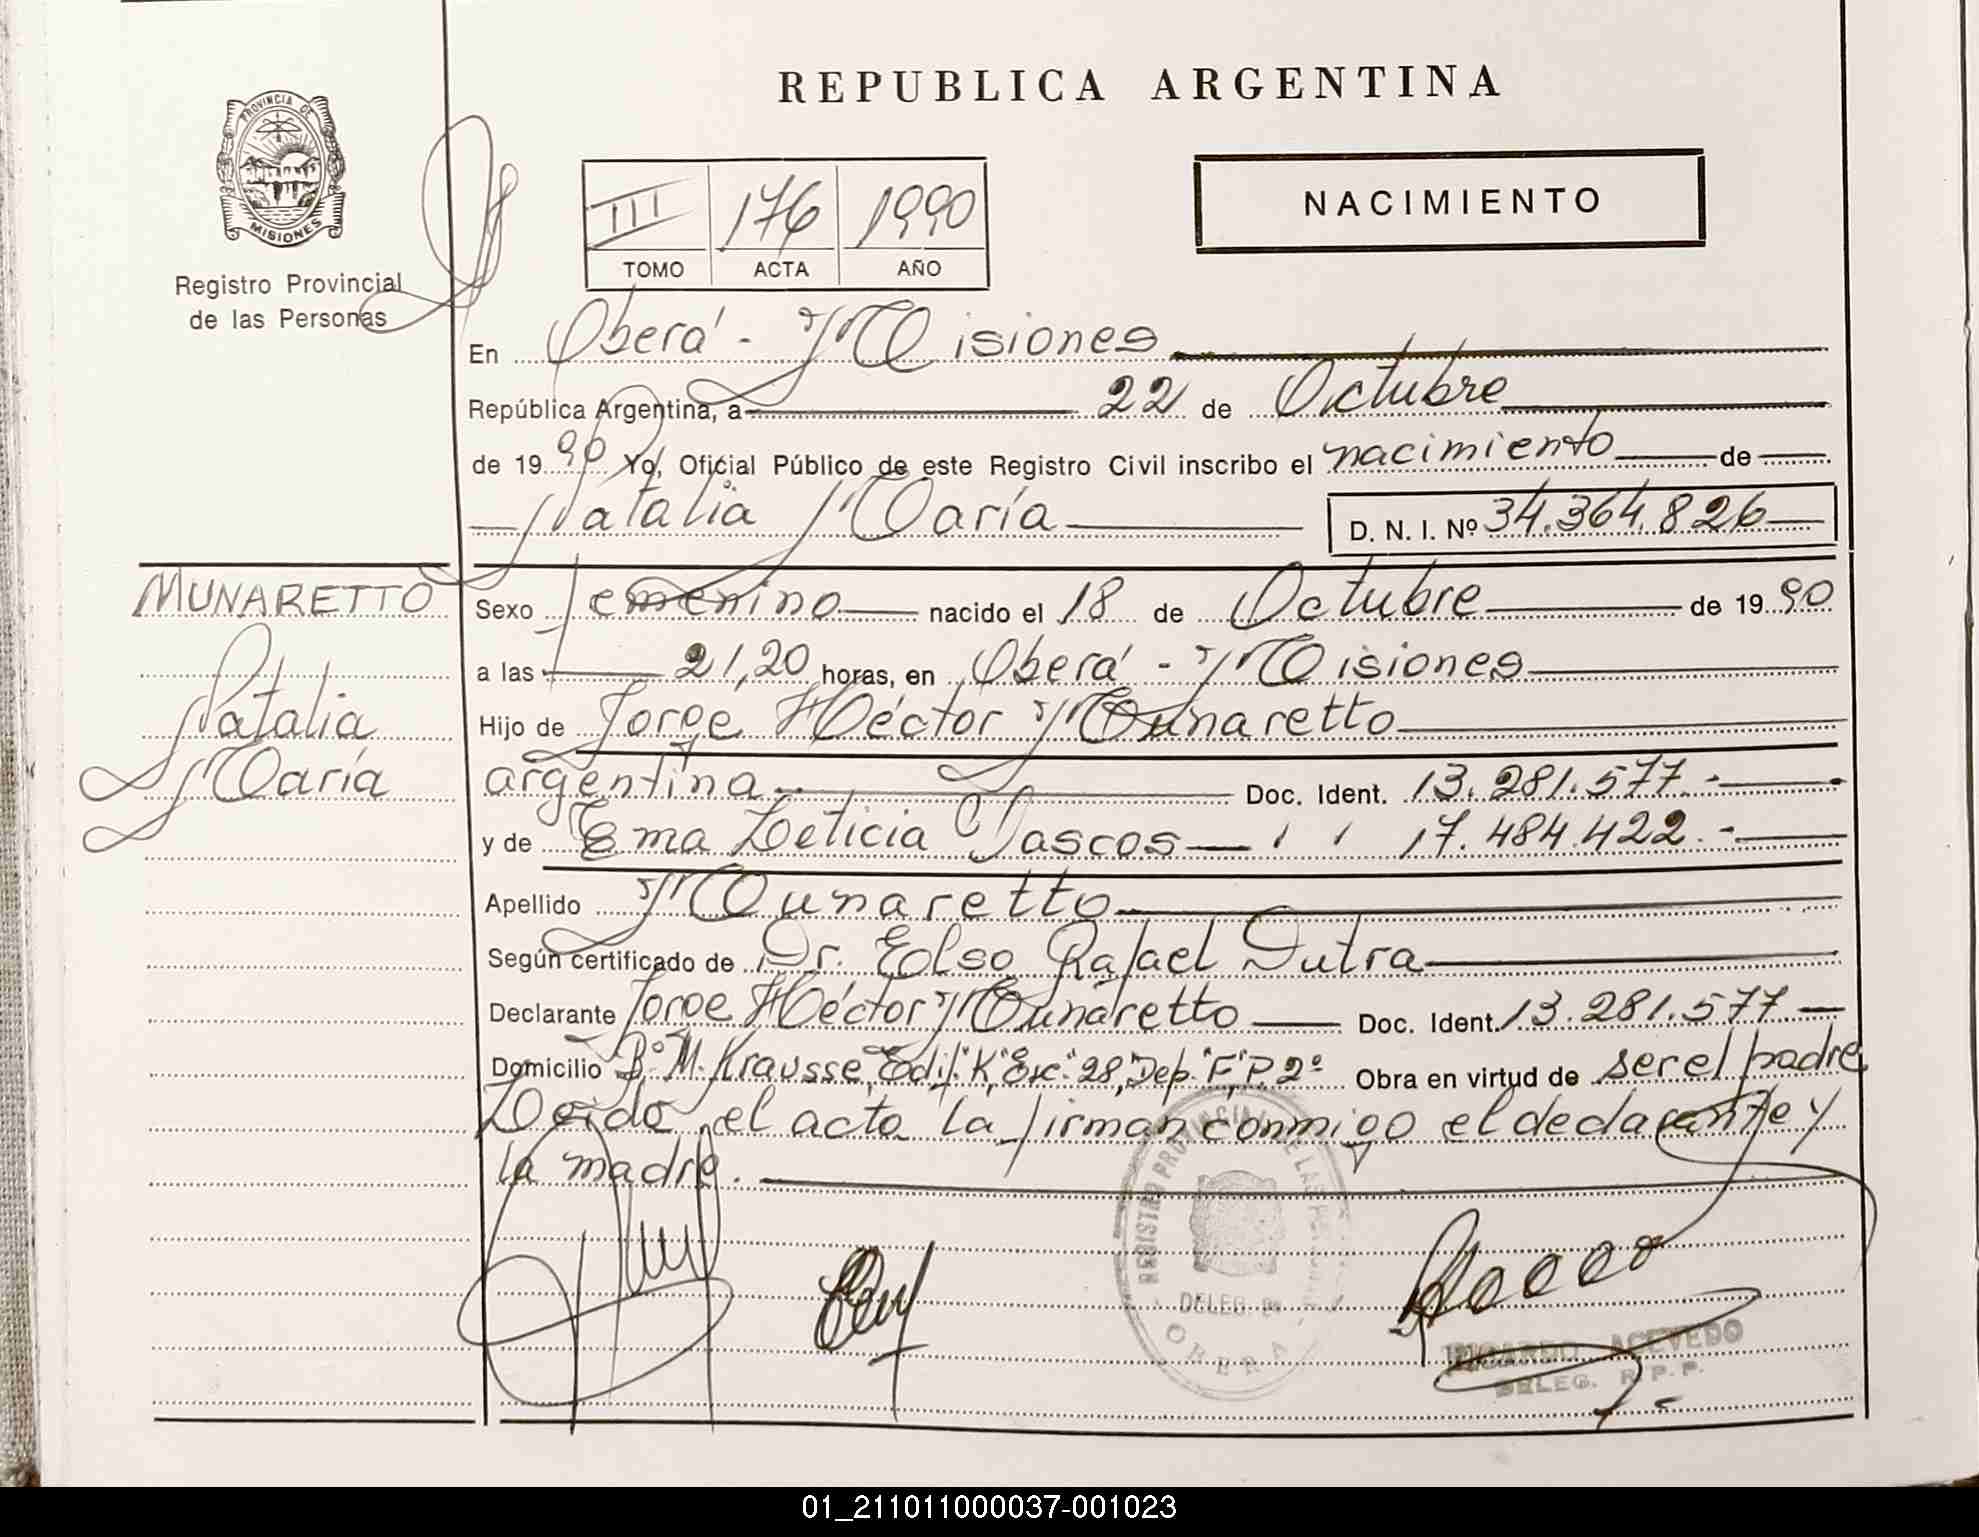 REPUBLICA ARGENTINA
PROVINCIA DE
MISIONES
Registro Provincial
de las Personas
III 176 1990
TOMO ACTA AÑO
NACIMIENTO
En Oberá - Misiones
República Argentina, a 22 de Octubre
de 1990 Yo, Oficial Público de este Registro Civil inscribo el nacimiento de
Natalia María D. N. I. Nº 34.364.826
MUNARETTO
Natalia
María
Sexo Femenino nacido el 18 de Octubre de 1990
a las 21,20 horas, en Oberá - Misiones
Hijo de Jorge Héctor Munaretto
argentina Doc. Ident. 13.281.577.-
y de Ema Leticia ' ' 17.484.422.-
Apellido Munaretto
Según certificado de Dr. Rafael Dutra
Declarante Jorge Héctor Munaretto Doc. Ident. 13.281.577
Domicilio Bº M. Krausse, Edif. "K", Esc. "28", Dep. "F", P. 2º Obra en virtud de ser el padre
Leida el acta la firman conmigo el declarante y
la madre.
REGISTRO PROVINCIAL DE LAS PERSONAS
DELEG.
OBERA
RICARDO ACEVEDO
DELEG. R. P. P.
01_211011000037-001023